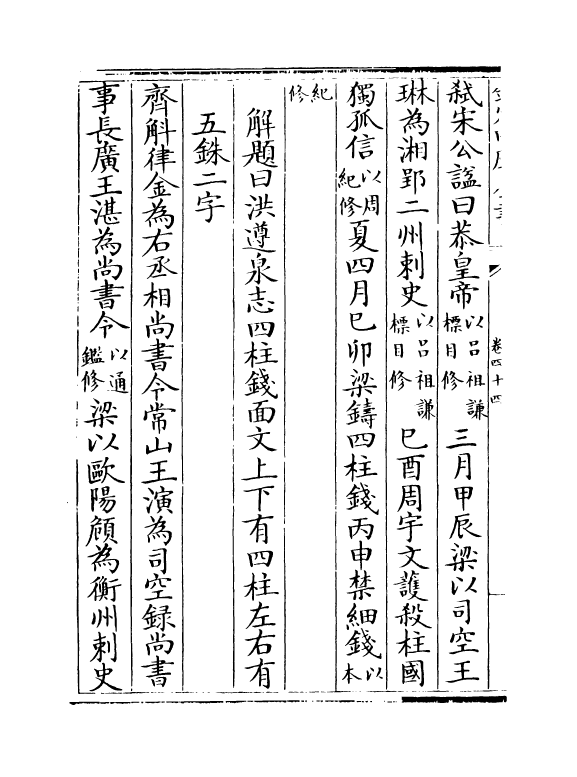 弒宋公諡曰恭皇帝以呂祖謙標目修三月甲辰梁以司空王
琳為湘郢二州刺史以呂祖謙標目修巳酉周宇文護殺柱國
獨孤信以周紀修夏四月巳卯梁鑄四柱錢丙申禁細錢以本
紀修
解題曰洪遵泉志四柱錢面文上下有四柱左右有
五銖二字
齊斛律金為右丞相尚書令常山王演為司空録尚書
事長廣王湛為尚書令以通鑑修梁以歐陽頠為衡州刺史
卷四十四